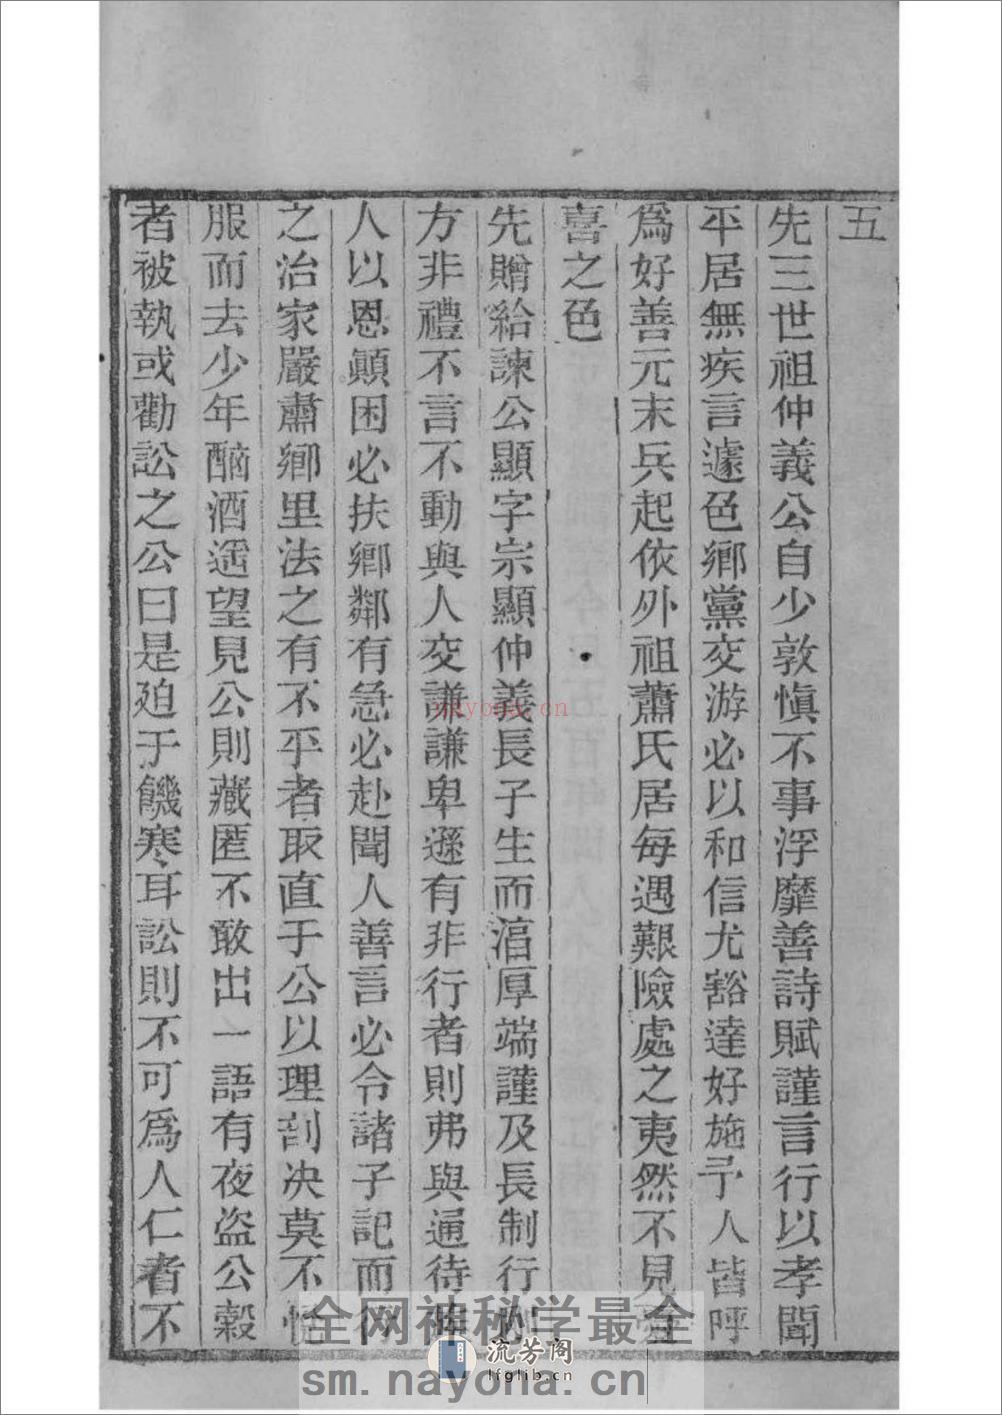 五
先三世祖仲義公自少敦愼不事浮靡善詩賦謹言行以孝聞
平居無疾言遽色鄉黨交游必以和信尤豁達好施予人皆呼
爲好善元末兵起依外祖蕭氏居每遇艱險處之夷然不見
喜之色
先贈給諫公顯字宗顯仲義長子生而湻厚端謹及長制行
方非禮不言不動與人交謙謙卑遜有非行者則弗與通待
人以恩顛困必扶鄉鄰有急必赴聞人善言必令諸子記而
之治家嚴肅鄉里法之有不平者取直于公以理剖决莫不
服而去少年酗酒遥望見公則藏匿不敢出一語有夜盜公穀
者被執或勸訟之公曰是廹于饑寒耳訟則不可爲人仁者不
nayona.cn
全网神秘学最全
流芳阁
lfglib.cn
sm.nayona.cn